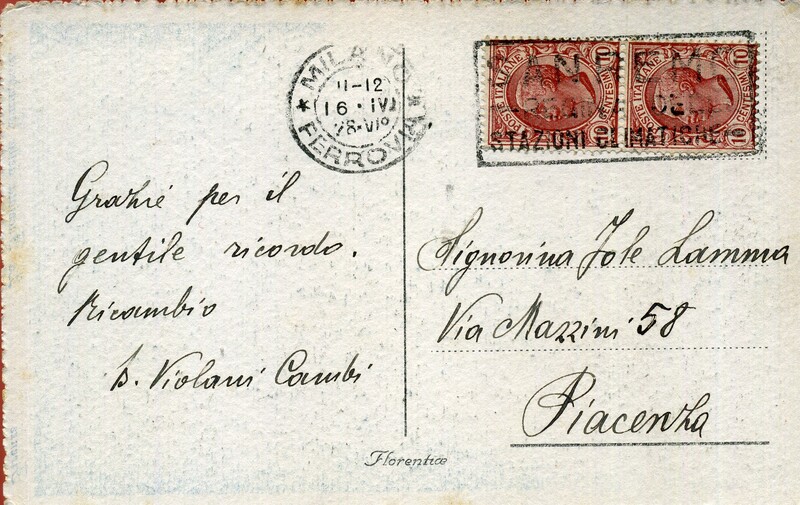 MILANO
FERROVIA
11-12
16·IV
28·VI°
POSTE ITALIANE
CENTESIMI
10
10
POSTE ITALIANE
CENTESIMI
10
10
STAZIONI CLIMATICHE
Grazie per il
gentile ricordo.
Ricambio
Violani Cambi
Signorina Jole Lamma
Via Mazzini 58
Piacenza
Florentiæ